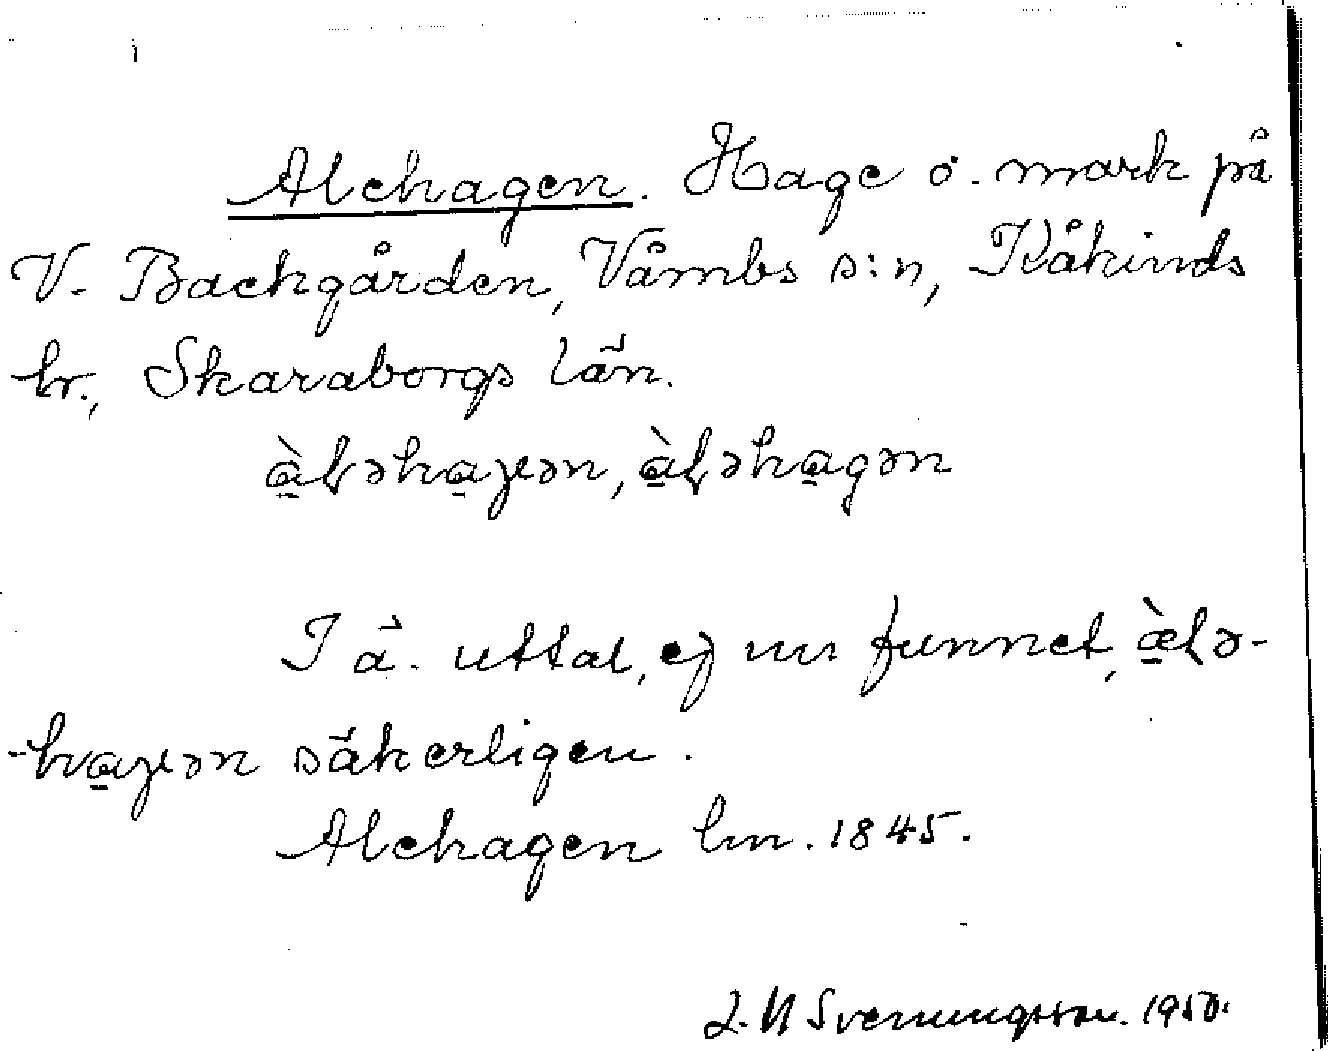 Alehagen. Hage o. mark på
V. Backgården, Våmbs s:n, Kåkinds
hr., Skaraborgs län.
àləhaɣən, àləhagən
I ä. uttal, ej nu funnet, àlə-
-haɣən säkerligen.
Alehagen lm. 1845.
Svenungsson. 1950.